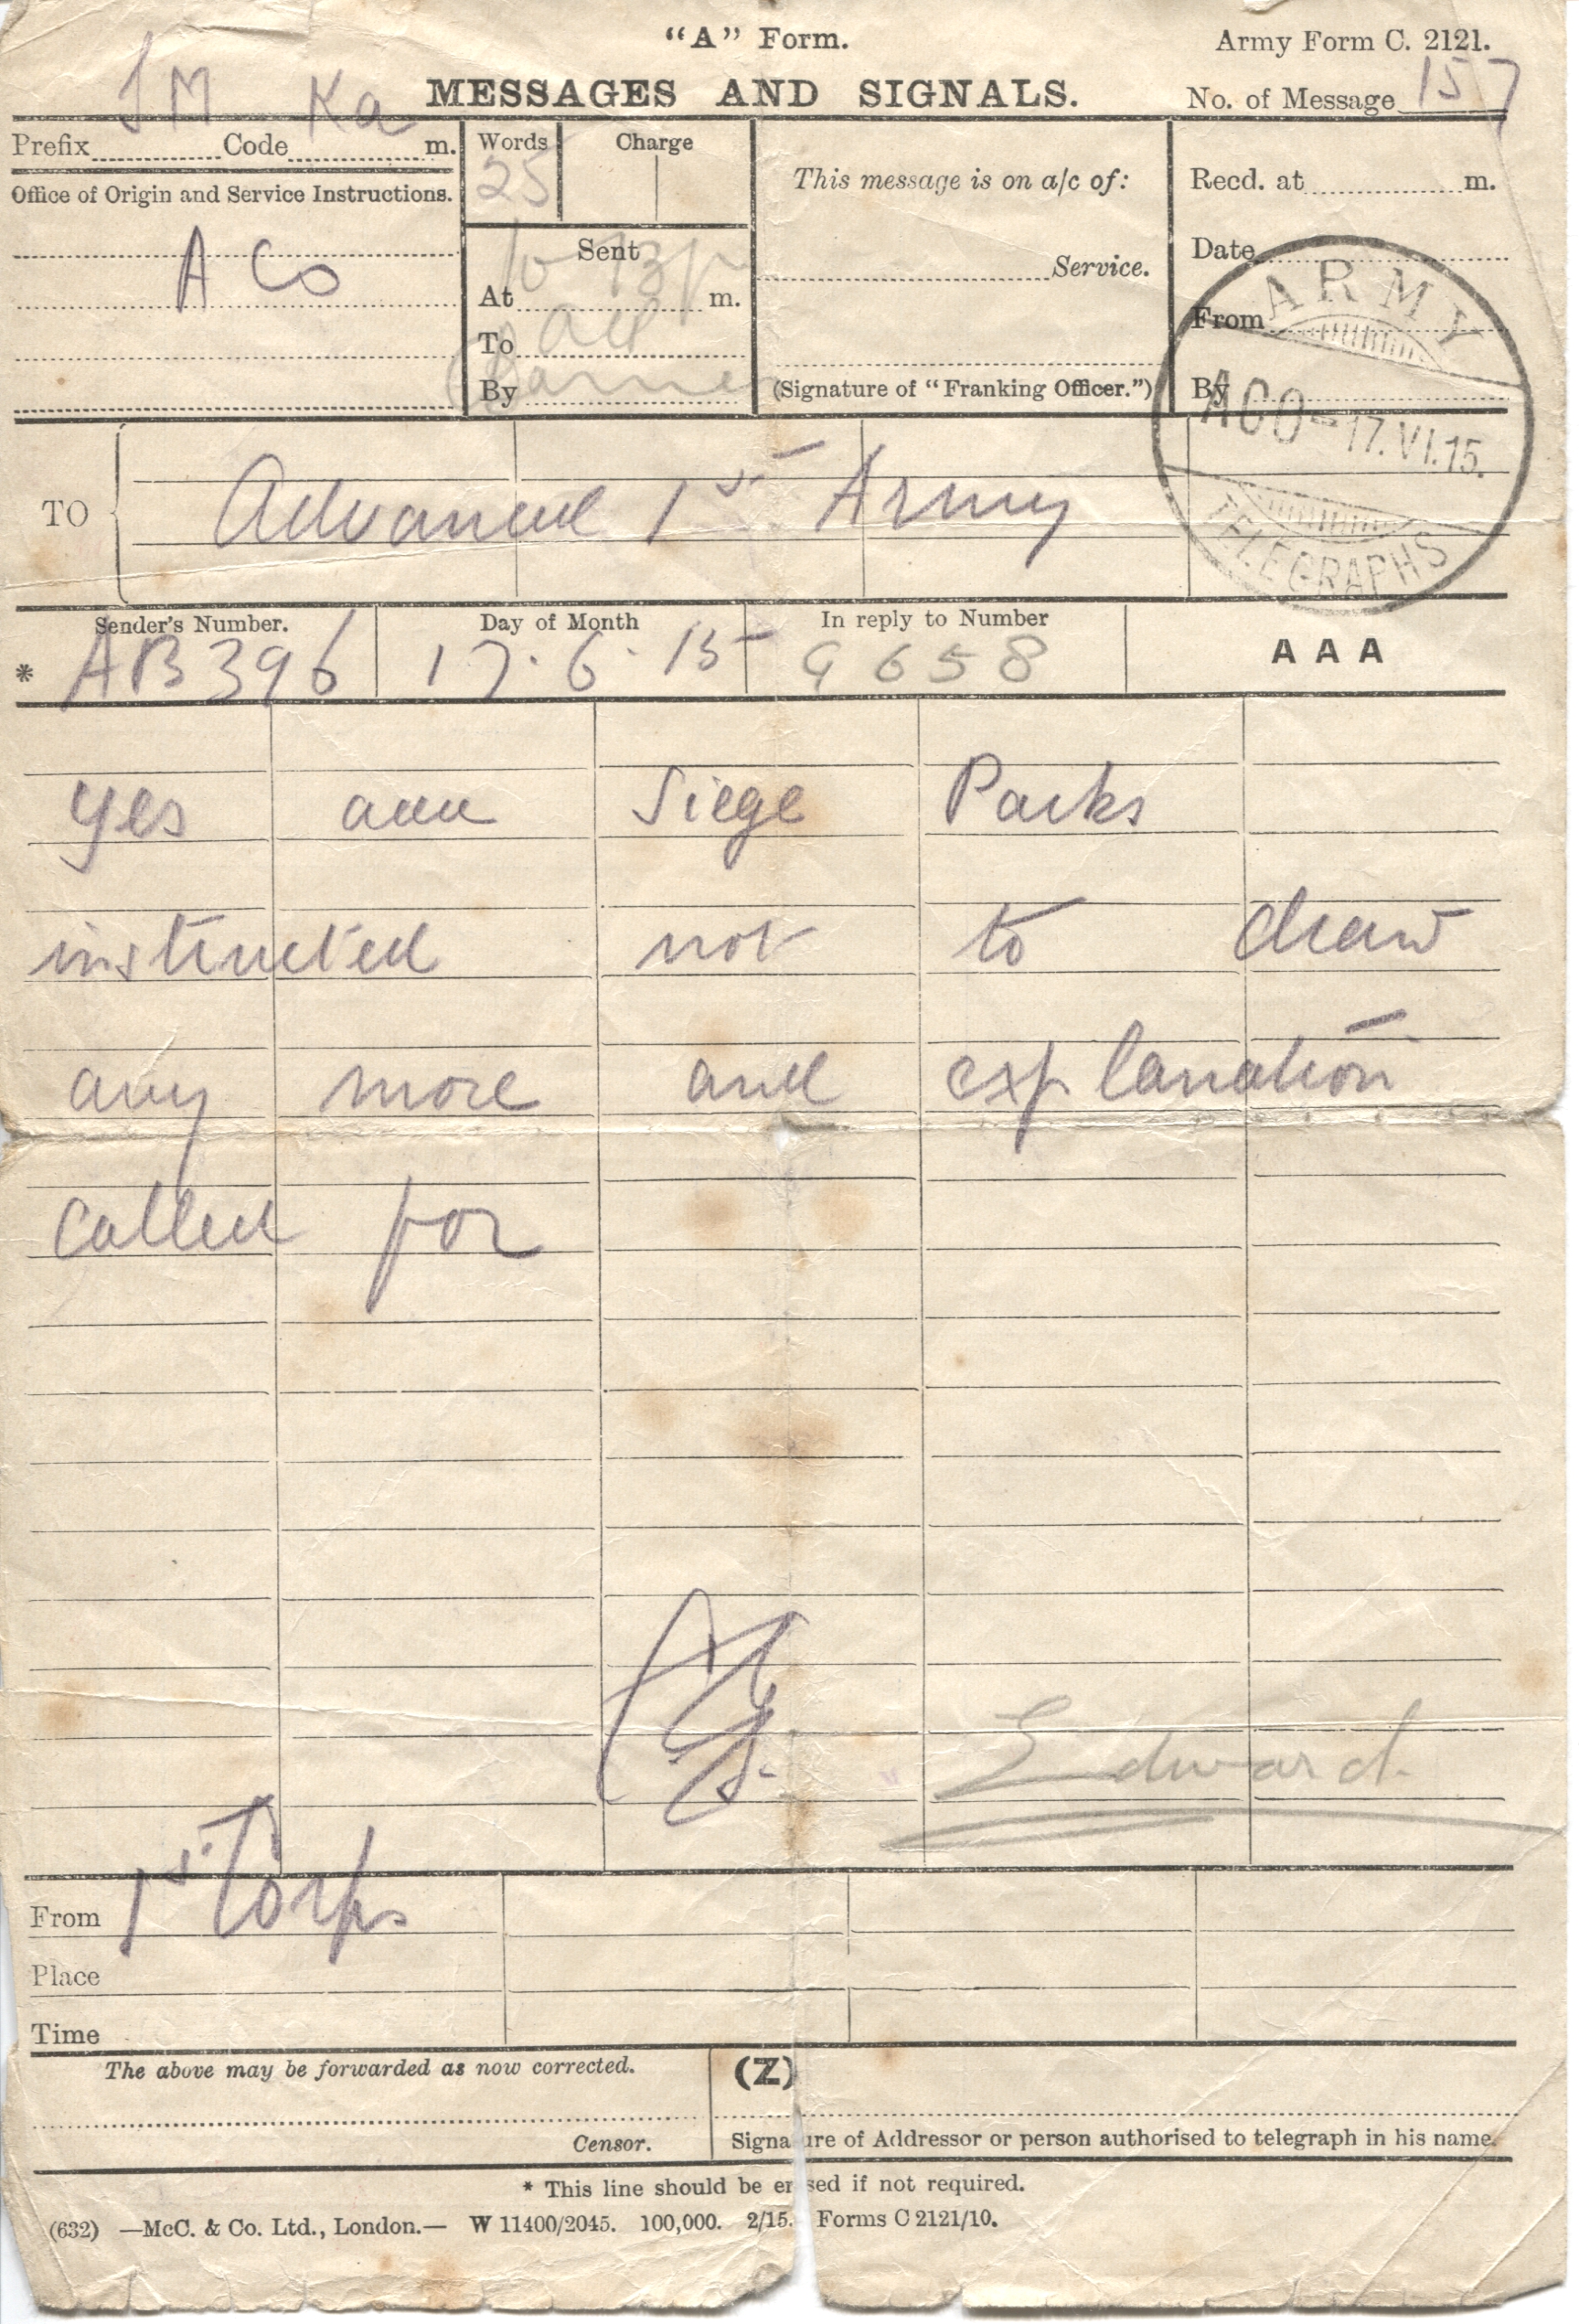 "A" Form.
Army Form C. 2121.
MESSAGES AND SIGNALS.
No. of Message 157
Prefix SM Code Ka m.
Words 25
Charge
This message is on a/c of:
Recd. at m.
Office of Origin and Service Instructions.
A Co
Sent
At m.
To
By
Service.
(Signature of "Franking Officer.")
Date
From
By
ARMY
ACO - 17.VI.15.
TELEGRAPHS
TO Advanced 1st Army
Sender's Number. Day of Month In reply to Number
* AB396 17.6.15 G658 AAA
yes aaa Siege Parks
instructed not to draw
any more and explanation
called for
Edward
From 1st Corps
Place
Time
The above may be forwarded as now corrected. (Z)
Censor. Signature of Addressor or person authorised to telegraph in his name.
* This line should be erased if not required.
(632) —McC. & Co. Ltd., London.— W 11400/2045. 100,000. 2/15. Forms C 2121/10.